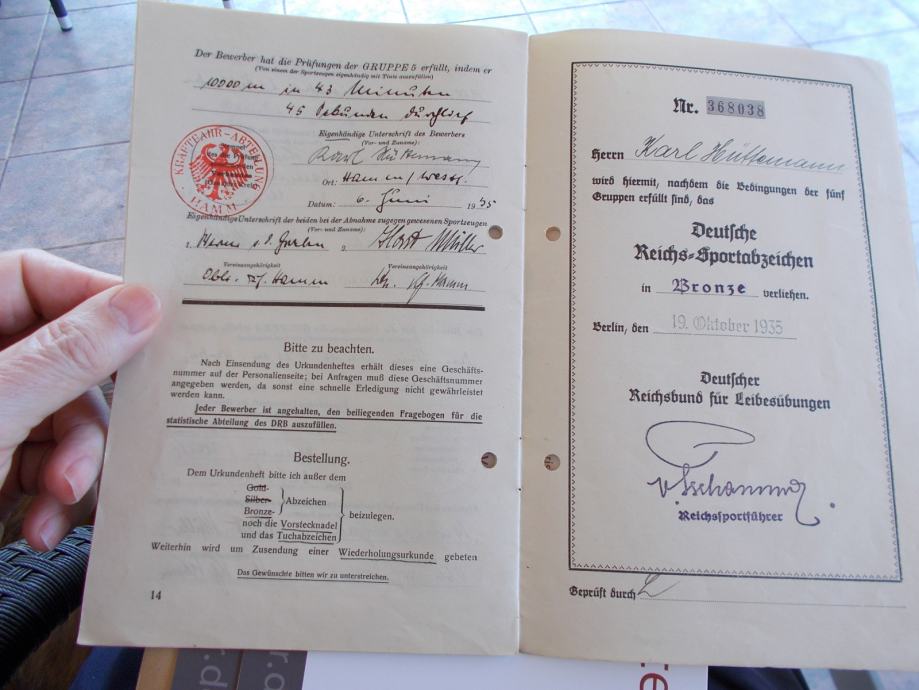 Der Bewerber hat die Prüfungen der GRUPPE 5 erfüllt, indem er
(Von einem der Sportzeugen eigenhändig mit Tinte auszufüllen)
10000 m in 43 Minuten
45 Sekunden durchlief
Eigenhändige Unterschrift des Bewerbers
(Vor- und Zuname):
Karl Hüttemann
KRAFTFAHR-ABTEILUNG
HAMM
Ort: Hamm / Westf.
Datum: 6. Juni 1935
Eigenhändige Unterschrift der beiden bei der Abnahme zugegen gewesenen Sportzeugen
(Vor- und Zuname):
1. 2. Horst Müller
Vereinszugehörigkeit Vereinszugehörigkeit
Hamm Hamm
Bitte zu beachten.
Nach Einsendung des Urkundenheftes erhält dieses eine Geschäfts-
nummer auf der Personalienseite; bei Anfragen muß diese Geschäftsnummer
angegeben werden, da sonst eine schnelle Erledigung nicht gewährleistet
werden kann.
Jeder Bewerber ist angehalten, den beiliegenden Fragebogen für die
statistische Abteilung des DRB auszufüllen.
Bestellung.
Dem Urkundenheft bitte ich außer dem
Gold-
Silber- Abzeichen
Bronze- beizulegen.
noch die Vorstecknadel
und das Tuchabzeichen
Weiterhin wird um Zusendung einer Wiederholungsurkunde gebeten
Das Gewünschte bitten wir zu unterstreichen.
14
Nr. 368038
Herrn Karl Hüttemann
wird hiermit, nachdem die Bedingungen der fünf
Gruppen erfüllt sind, das
Deutsche
Reichs-Sportabzeichen
in Bronze verliehen.
Berlin, den 19. Oktober 1935
Deutscher
Reichsbund für Leibesübungen
v. Tschammer
Reichssportführer
Geprüft durch